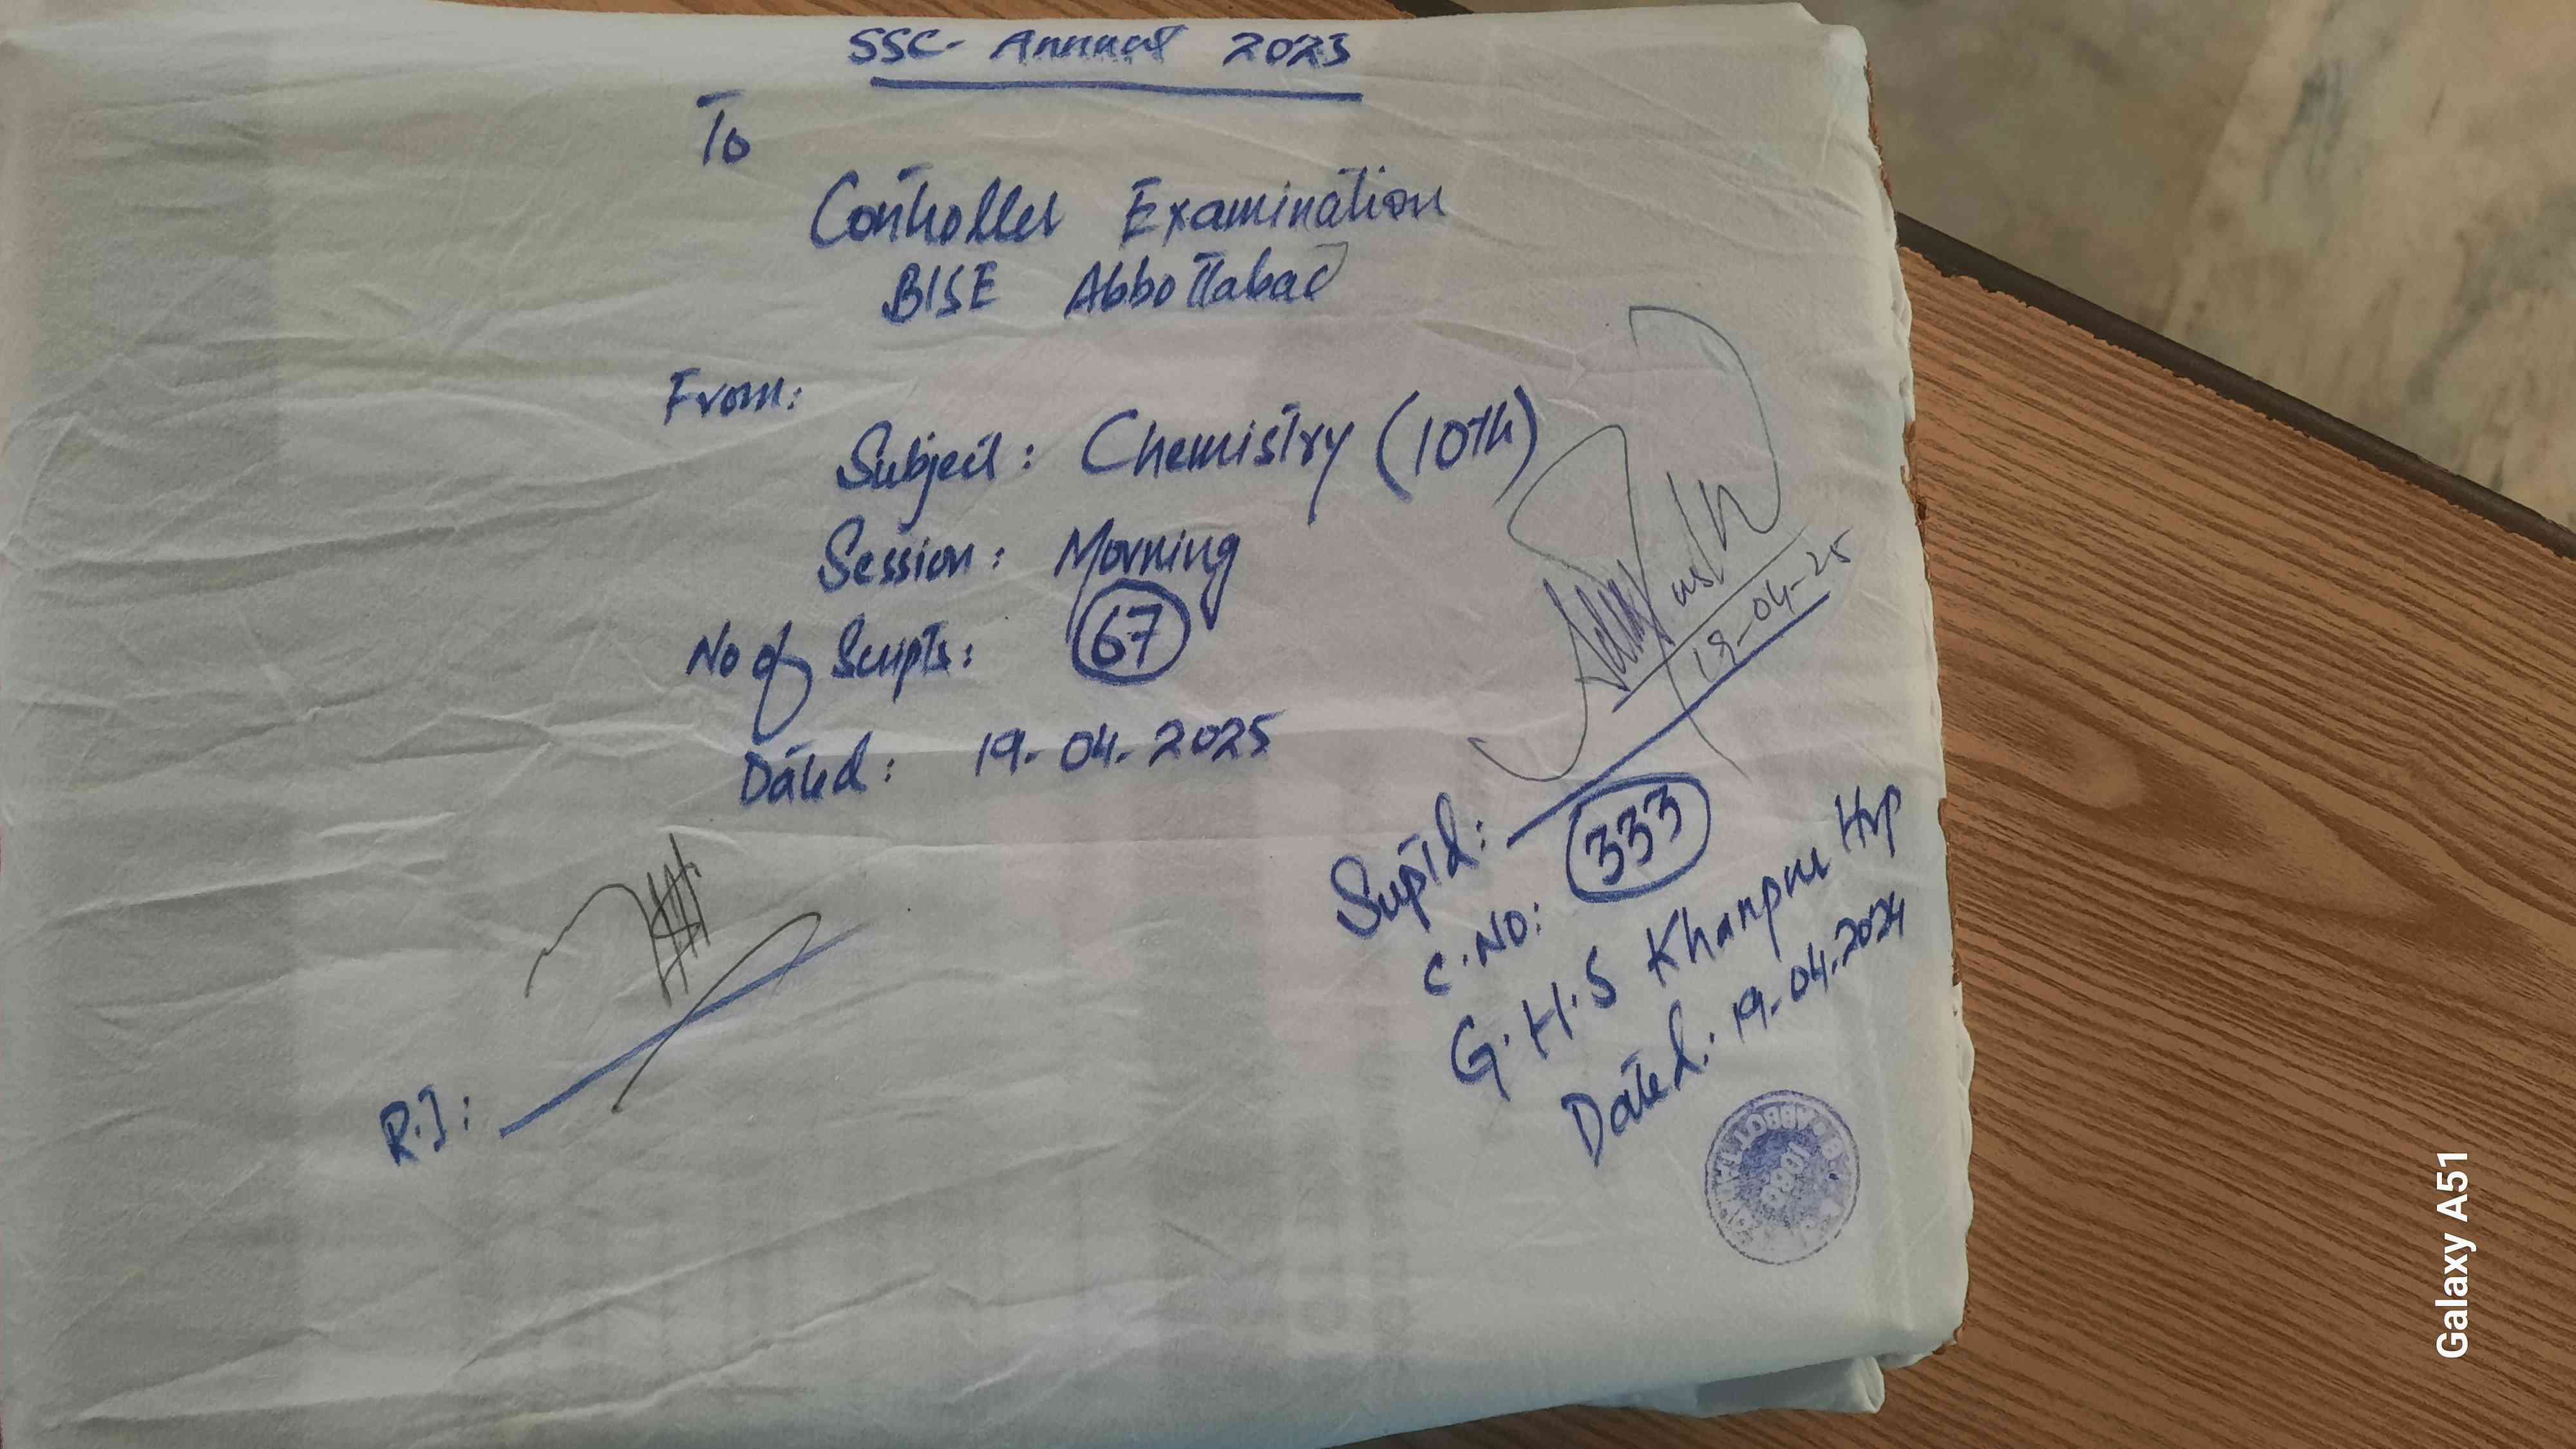 SSC- Annual 2023
To
Controller Examination
BISE Abbottabad
From:
Subject: Chemistry (10th)
Session: Morning
No of Scripts: 67
Dated: 19-04-2025
19-04-25
Suptd:
C.No: 333
G.H.S Khanpur Hrp
Dated: 19-04-2024
R.I:
Galaxy A51